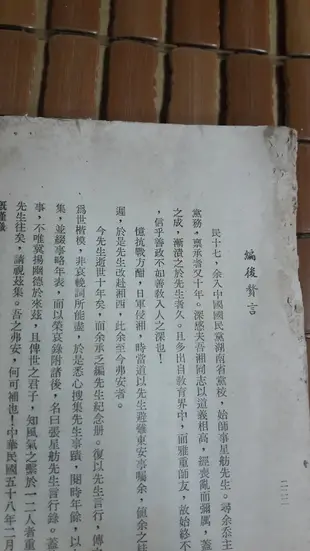 編後贅言
民十七，余入中國國民黨湖南省黨校，始師事星舫先生。尋余忝主
黨務，稟承者又十年。深感夫吾湘同志以道義相高，經喪亂而彌厲，蓋
之成，漸漬之於先生者久。且多出自教育界中，而雅重師友，故始終不
，信乎善政不如善教入人之深也！
憶抗戰方酣，日軍侵湘，時當道以先生避難東安事囑余，值余之
遲，於是先生改赴湘西，此余至今弗安者。
今先生逝世十年矣，而余承乏編先生紀念册。復以先生言行，傳
爲世楷模，非哀輓詞所能盡，於是悉心搜集先生事蹟，閱時年餘，以
集，並綴事略年表，而以榮哀錄附諸後，名曰張星舫先生言行錄。蓋
事，不唯冀揚幽德於來茲，且俾世之君子，知風氣之繫於一二人者重
先生往矣，請視茲集。吾之弗安，何可補也！中華民國五十八年二月
二二